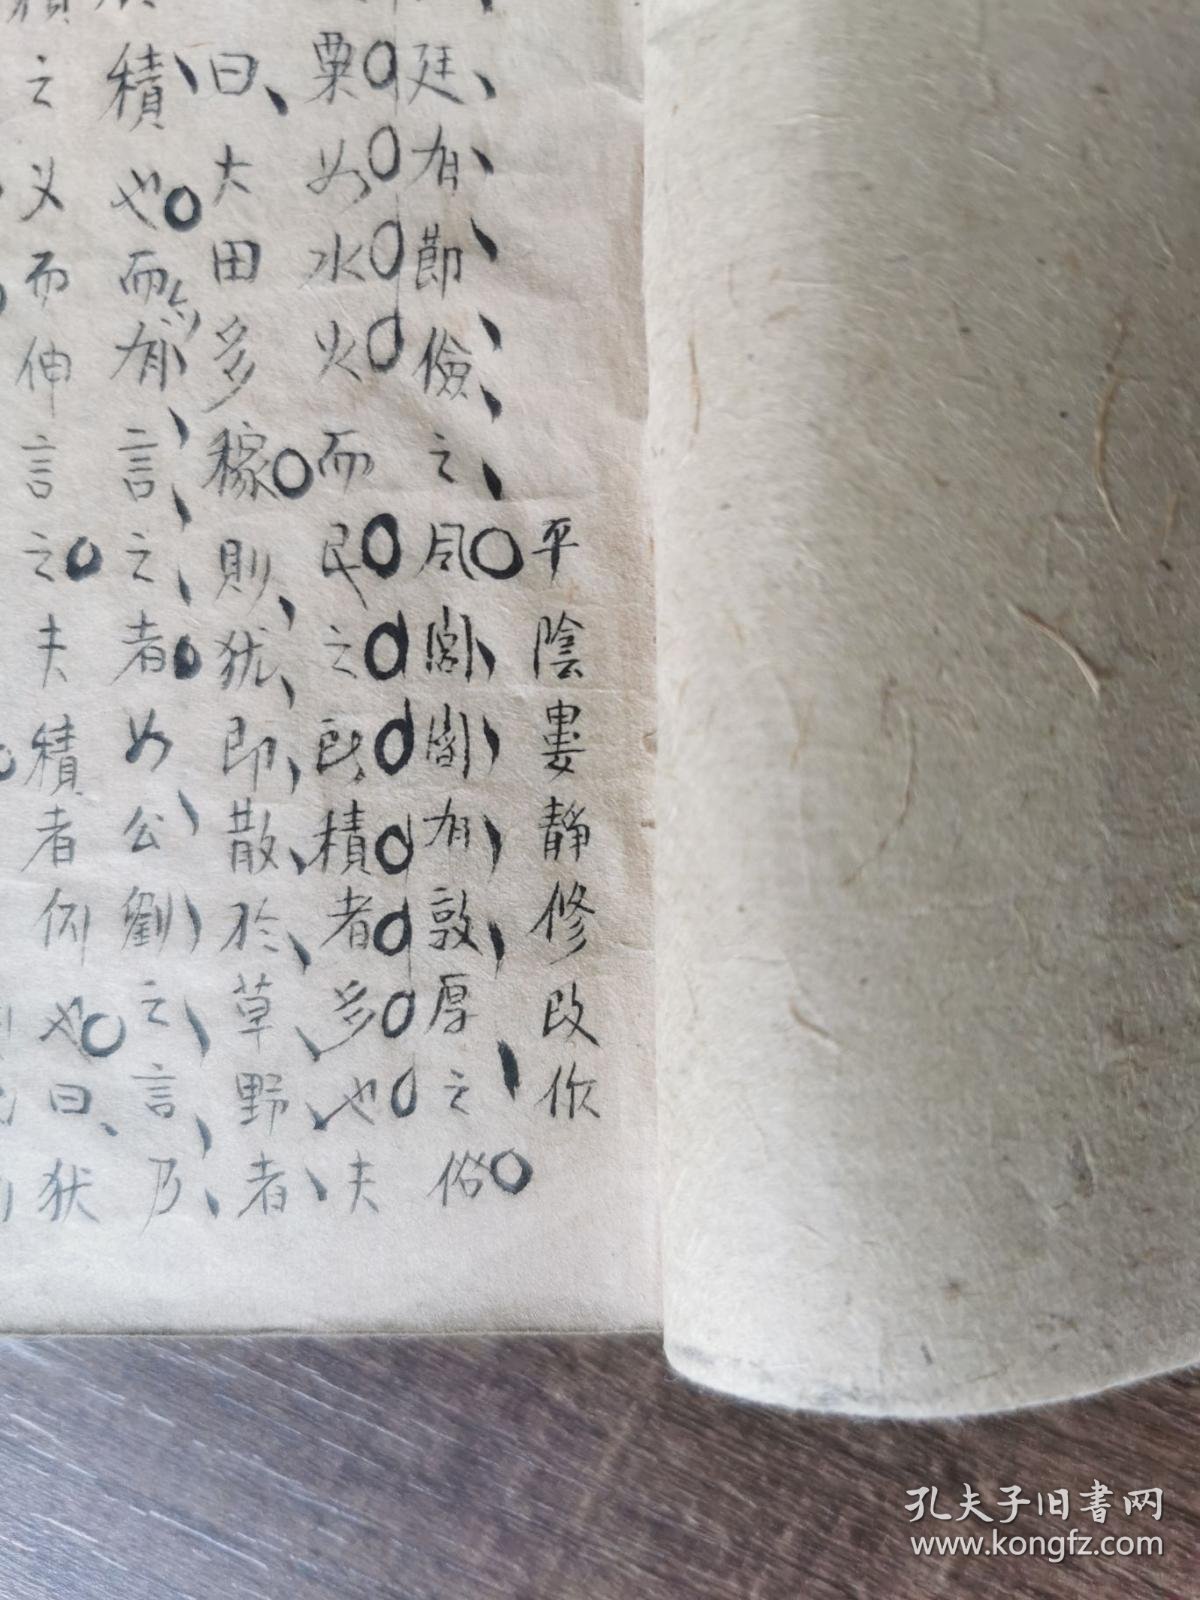 平陰婁靜修改作
廷有節儉之風閭閻有敦厚之俗
粟如水火而民之所積者多也夫
曰大田多稼則猶即散於草野者
積也而有言之者如公劉之言乃
之义而伸言之夫積者何也曰犹
孔夫子旧書网
www.kongfz.com